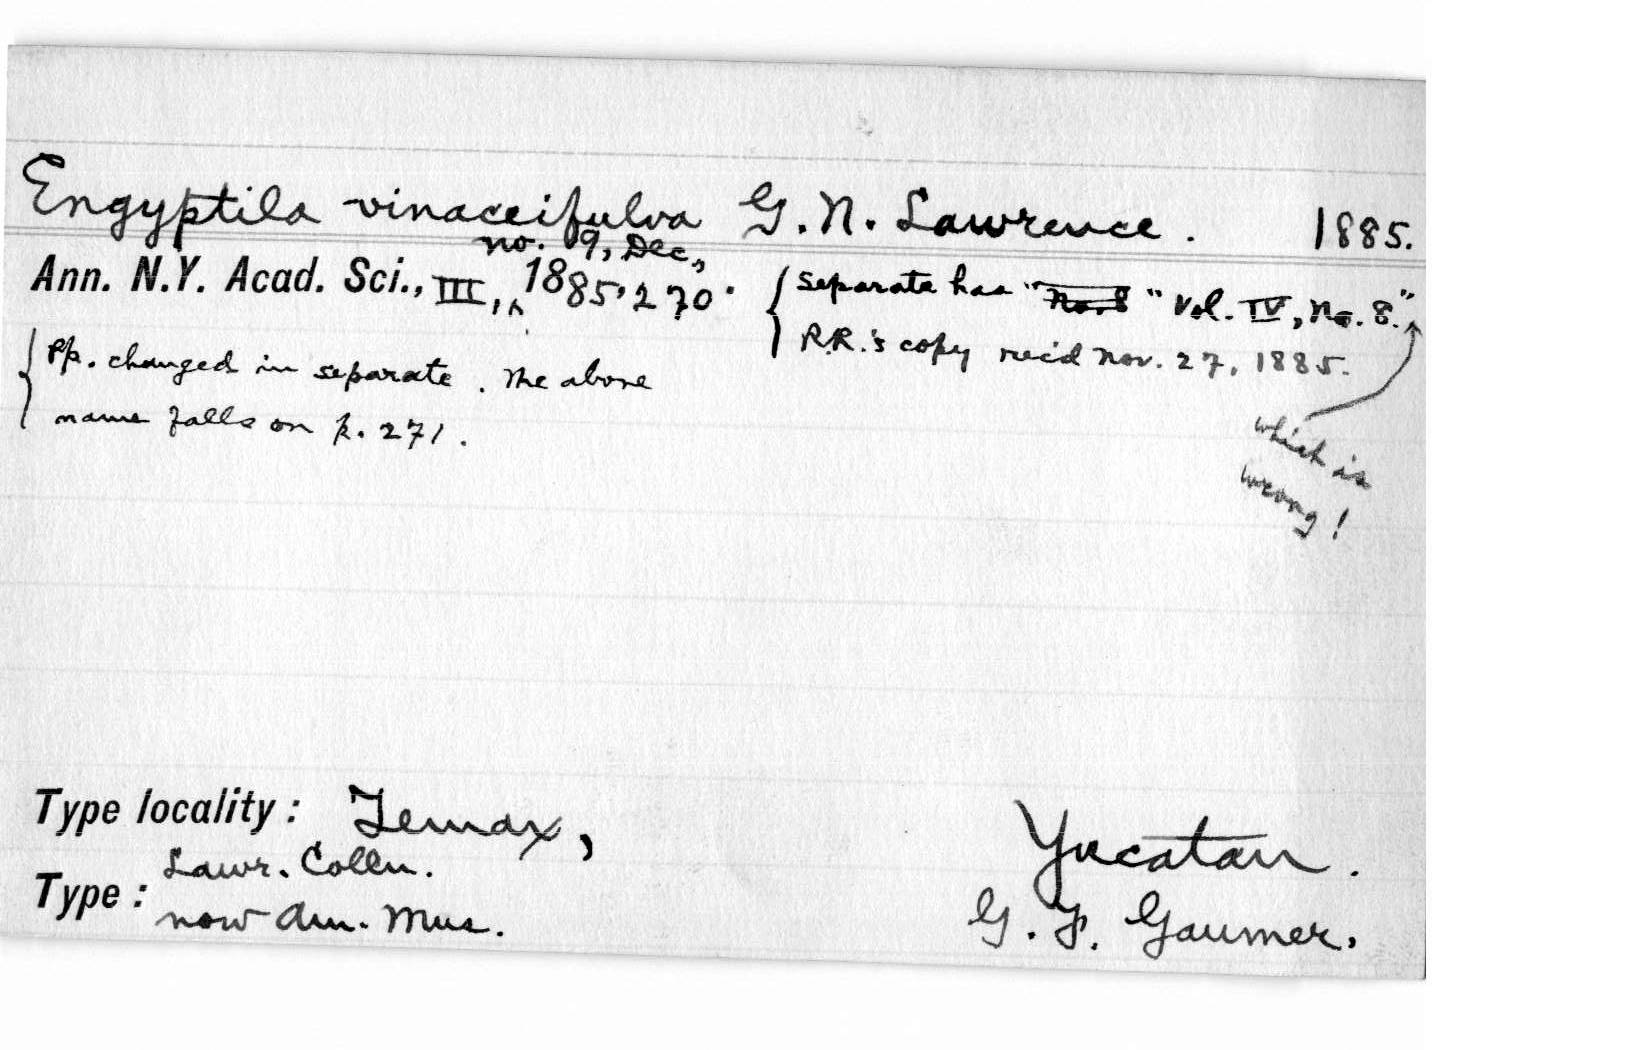 Engyptila vinaceifulva G. N. Lawrence. 1885.
no. 9, Dec.,
Ann. N.Y. Acad. Sci., III, ^ 1885, 270.
{ Separate has "No. 8" Vol. IV, No. 8."
R.R.'s copy rec'd Nov. 27, 1885.
which is
wrong!
{ Pp. changed in separate. The above
name falls on p. 271.
Type locality: Temax, Yucatan.
Lawr. Colln.
Type: now Am. Mus. G. F. Gaumer.